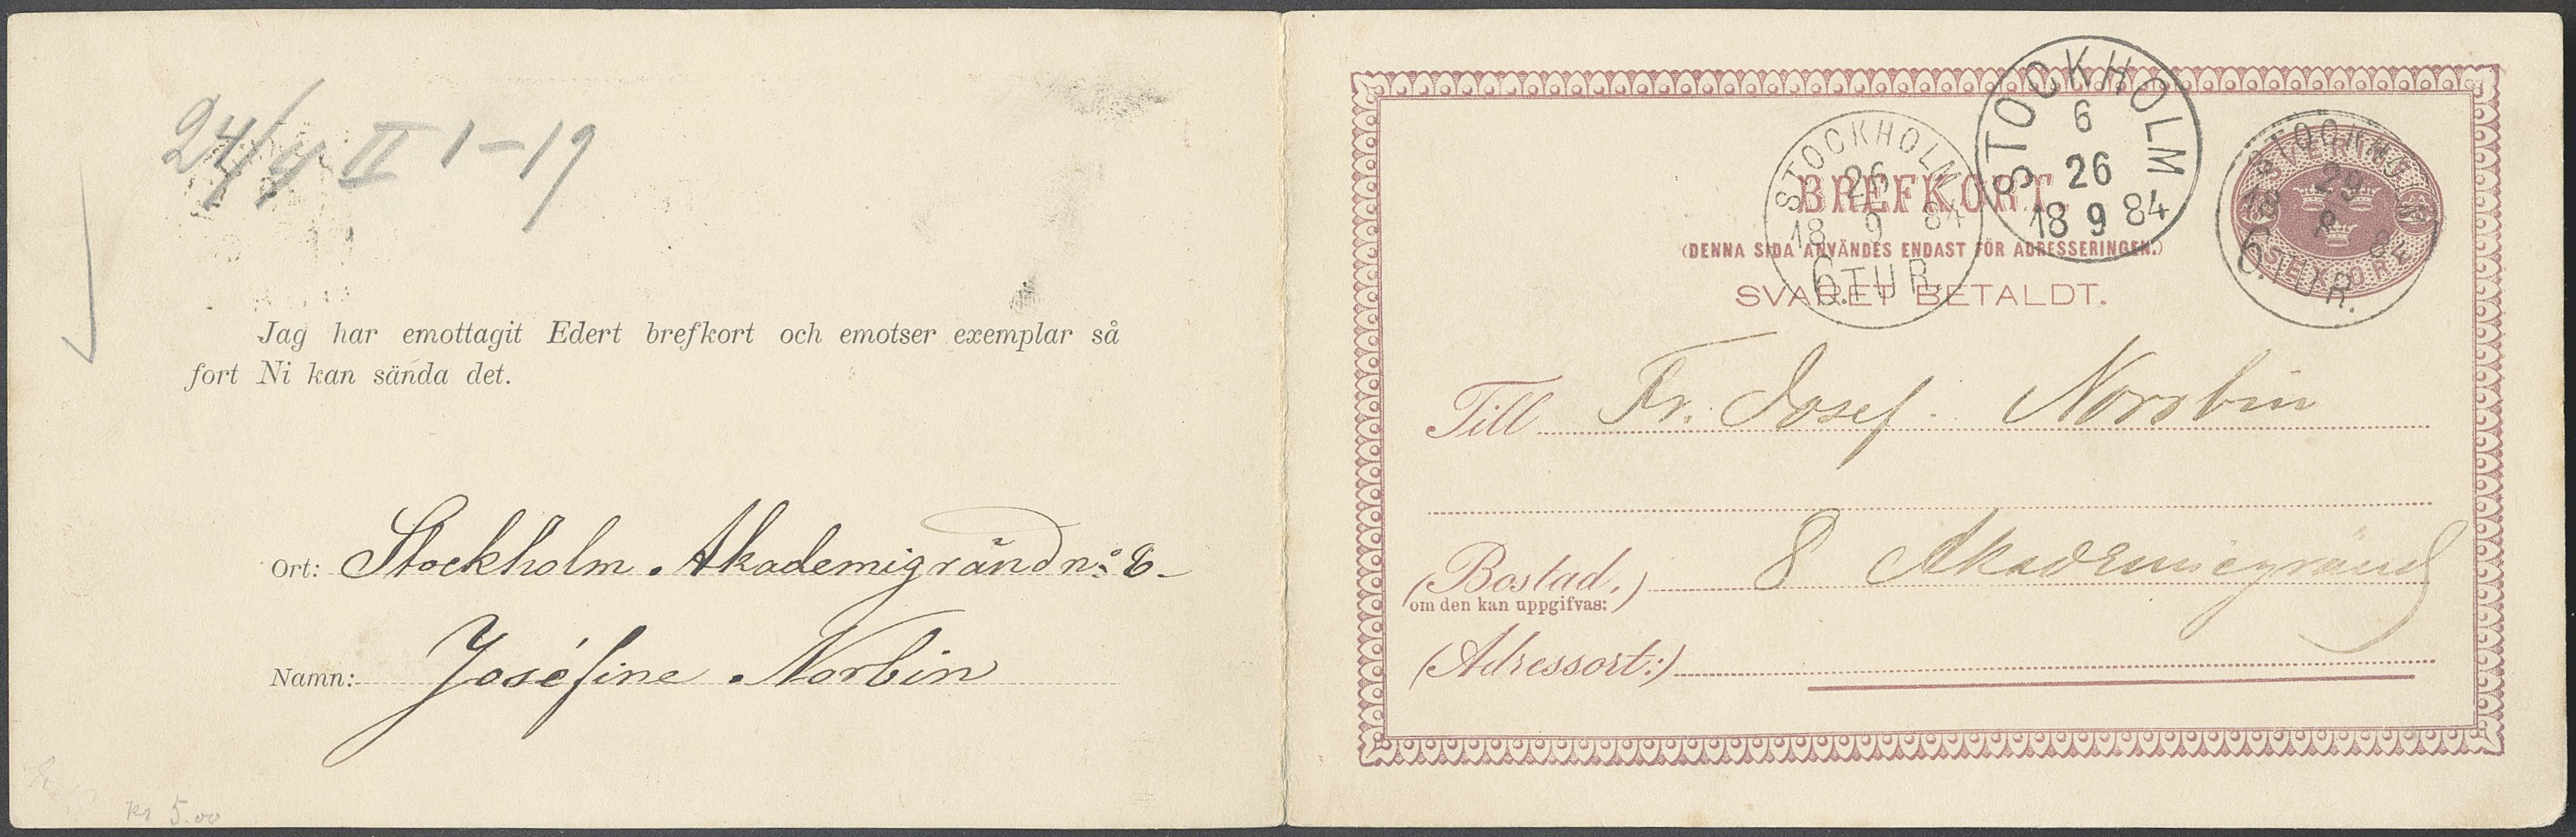 24/4 II 1-19
Jag har emottagit Edert brefkort och emotser exemplar så
fort Ni kan sända det.
Ort: Stockholm. Akademigränd nº 8-
Namn: Joséfine. Norbin
kr 5.00
STOCKHOLM
6
26
18 9 84
STOCKHOLM
26
18 9 84
6.TUR.
STOCKHOLM
29
18 8 84
6.TUR.
SVERIGE
SEX ÖRE
BREFKORT
(DENNA SIDA ANVÄNDES ENDAST FÖR ADRESSERINGEN.)
SVARET BETALDT.
Till Fr. Josef. Norrbin
(Bostad.) 8 Akademiegränd
om den kan uppgifvas:
(Adressort:)